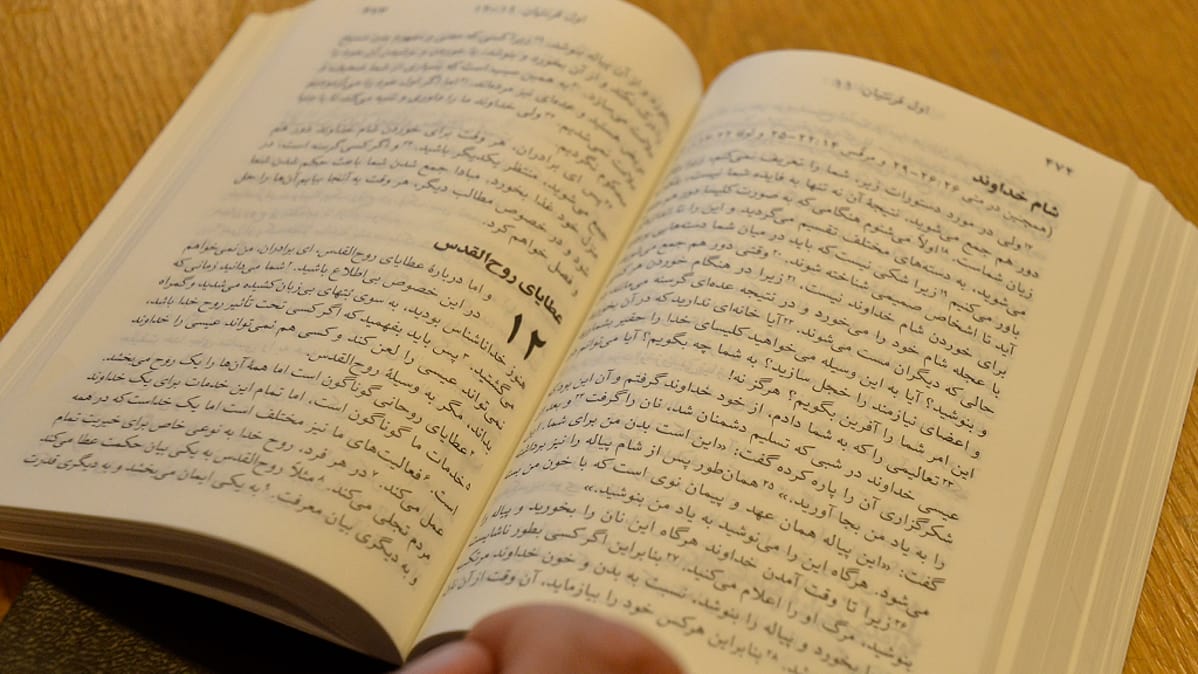 ۴۷۴
اول قرنتیان ۱۱
شام خداوند
(همچنین در متی ۲۶:۲۶-۲۹ و مرقس ۱۴:۲۲-۲۵ و لوقا ۲۲
۱۷ ولی در مورد دستورات زیر، شما را تعریف نمی‌کنم،
دور هم جمع می‌شوید، نتیجهٔ آن نه تنها به فایده شما نیست،
زیان شماست. ۱۸ اولاً می‌شنوم هنگامی که به صورت کلیسا دور هم
می‌شوید، به دسته‌های مختلف تقسیم می‌گردید و این را تا
باور می‌کنم ۱۹ زیرا شکی نیست که باید در میان شما دسته‌هایی
آید تا اشخاص صمیمی شناخته شوند. ۲۰ وقتی دور هم جمع می‌شوید
برای خوردن شام خداوند نیست. ۲۱ زیرا در هنگام خوردن هرکس
با عجله شام خود را می‌خورد و در نتیجه عده‌ای گرسنه می‌مانند
حالی که دیگران مست می‌شوند. ۲۲ آیا خانه‌ای ندارید که در آن بخورید
و بنوشید؟ آیا به این وسیله می‌خواهید کلیسای خدا را حقیر بشمارید
و اعضای نیازمند را خجل سازید؟ به شما چه بگویم؟ آیا می‌توانم در
این امر شما را آفرین بگویم؟ هرگز نه!
۲۳ تعالیمی را که به شما دادم، از خود خداوند گرفتم و آن این بود که
عیسی خداوند در شبی که تسلیم دشمنان شد، نان را گرفت ۲۴ و بعد از
شکرگزاری آن را پاره کرده گفت: «این است بدن من برای شما. این
را به یاد من بجا آورید.» ۲۵ همان‌طور پس از شام پیاله را نیز برداشته
گفت: «این پیاله همان عهد و پیمان نوی است که با خون من بسته
می‌شود. هرگاه این را می‌نوشید به یاد من بنوشید.»
۲۶ زیرا تا وقت آمدن خداوند هرگاه این نان را بخورید و پیاله را
بنوشید، مرگ او را اعلام می‌کنید. ۲۷ بنابراین اگر کسی بطور ناشایست
را بخورد و پیاله را بنوشد، نسبت به بدن و خون خداوند مرتکب
۲۸ بنابراین هرکس خود را بیازماید، آن وقت از آن نان
اول قرنتیان ۱۱، ۱۲
از آن پیاله بنوشد. ۲۹ زیرا کسی که معنی و مفهوم بدن مسیح
نکند و از آن بخورد و بنوشد، با خوردن و نوشیدن آن خود را
می‌سازد. ۳۰ به همین سبب است که بسیاری از شما ضعیف و
هستند و عده‌ای نیز مرده‌اند. ۳۱ اما اگر اول خود را می‌آزمودیم
نمی‌شدیم. ۳۲ ولی خداوند ما را داوری و تنبیه می‌کند تا با دنیا
محکوم نگردیم.
۳۳ پس ای برادران، هر وقت برای خوردن شام خداوند دور هم
جمع می‌شوید، منتظر یکدیگر باشید. ۳۴ و اگر کسی گرسنه است، در
منزل خود غذا بخورد، مبادا جمع شدن شما باعث محکم شدن شما
شود و در خصوص مطالب دیگر، هر وقت به آنجا بیایم آن‌ها را حل
و فصل خواهم کرد.
عطایای روح‌القدس
۱۲
و اما دربارهٔ عطایای روح‌القدس، ای برادران، من نمی‌خواهم
در این خصوص بی‌اطلاع باشید. ۲ شما می‌دانید زمانی که
هنوز خداناشناس بودید، به سوی بُتهای بی‌زبان کشیده می‌شدید و گمراه
می‌گشتید. ۳ پس باید بفهمید که اگر کسی تحت تأثیر روح خدا باشد،
نمی‌تواند عیسی را لعن کند و کسی هم نمی‌تواند عیسی را خداوند
بداند، مگر به وسیلهٔ روح‌القدس.
۴ عطایای روحانی گوناگون است اما همهٔ آن‌ها را یک روح می‌بخشد.
۵ خدمات ما گوناگون است، اما تمام این خدمات برای یک خداوند
است. ۶ فعالیت‌های ما نیز مختلف است اما یک خداست که در همه
عمل می‌کند. ۷ در هر فرد، روح خدا به نوعی خاص برای خیریت تمام
مردم تجلی می‌کند. ۸ مثلاً روح‌القدس به یکی بیان حکمت عطا می‌کند
و به دیگری بیان معرفت. ۹ به یکی ایمان می‌بخشد و به دیگری قدرت